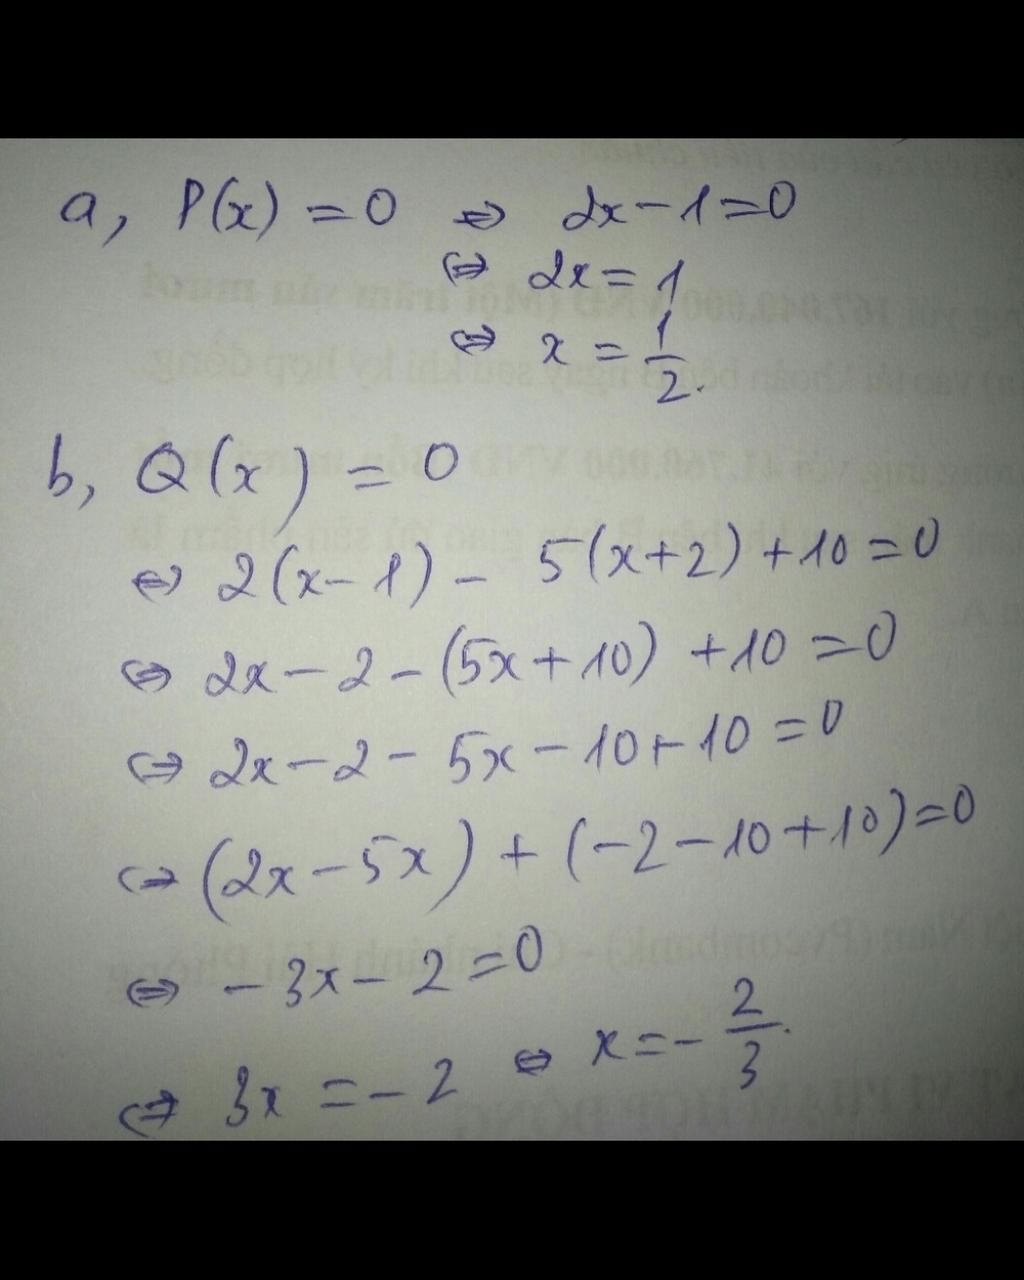 a, P(x) = 0 ⇔ 2x - 1 = 0
⇔ 2x = 1
⇔ x = 1/2.
b, Q(x) = 0
⇔ 2(x - 1) - 5(x + 2) + 10 = 0
⇔ 2x - 2 - (5x + 10) + 10 = 0
⇔ 2x - 2 - 5x - 10 + 10 = 0
⇔ (2x - 5x) + (-2 - 10 + 10) = 0
⇔ -3x - 2 = 0
⇔ 3x = -2 ⇔ x = -2/3.